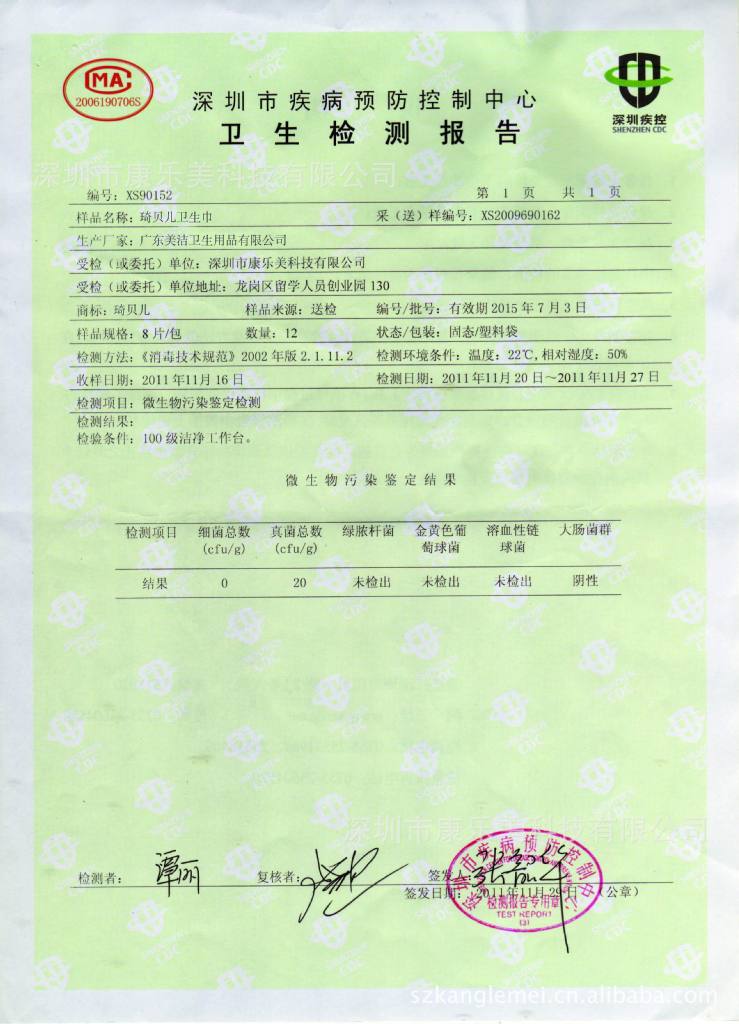 CMA
2006190706S
深圳疾控
SHENZHEN CDC
深圳市疾病预防控制中心
卫生检测报告
深圳市康乐美科技有限公司
编号：XS90152 第 1 页 共 1 页
样品名称：琦贝儿卫生巾 采（送）样编号：XS2009690162
生产厂家：广东美洁卫生用品有限公司
受检（或委托）单位：深圳市康乐美科技有限公司
受检（或委托）单位地址：龙岗区留学人员创业园130
商标：琦贝儿 样品来源：送检 编号/批号：有效期2015年7月3日
样品规格：8片/包 数量：12 状态/包装：固态/塑料袋
检测方法：《消毒技术规范》2002年版2.1.11.2 检测环境条件：温度：22℃,相对湿度：50%
收样日期：2011年11月16日 检测日期：2011年11月20日～2011年11月27日
检测项目：微生物污染鉴定检测
检测结果：
检验条件：100级洁净工作台。
微生物污染鉴定结果
检测项目 细菌总数(cfu/g) 真菌总数(cfu/g) 绿脓杆菌 金黄色葡萄球菌 溶血性链球菌 大肠菌群
结果 0 20 未检出 未检出 未检出 阴性
深圳市康乐美科技有限公司
检测者：谭丽 复核者： 签发人：
签发日期：2011年11月29日（公章）
深圳市疾病预防控制中心
检测报告专用章
TEST REPORT
(3)
szkanglemei.cn.alibaba.com